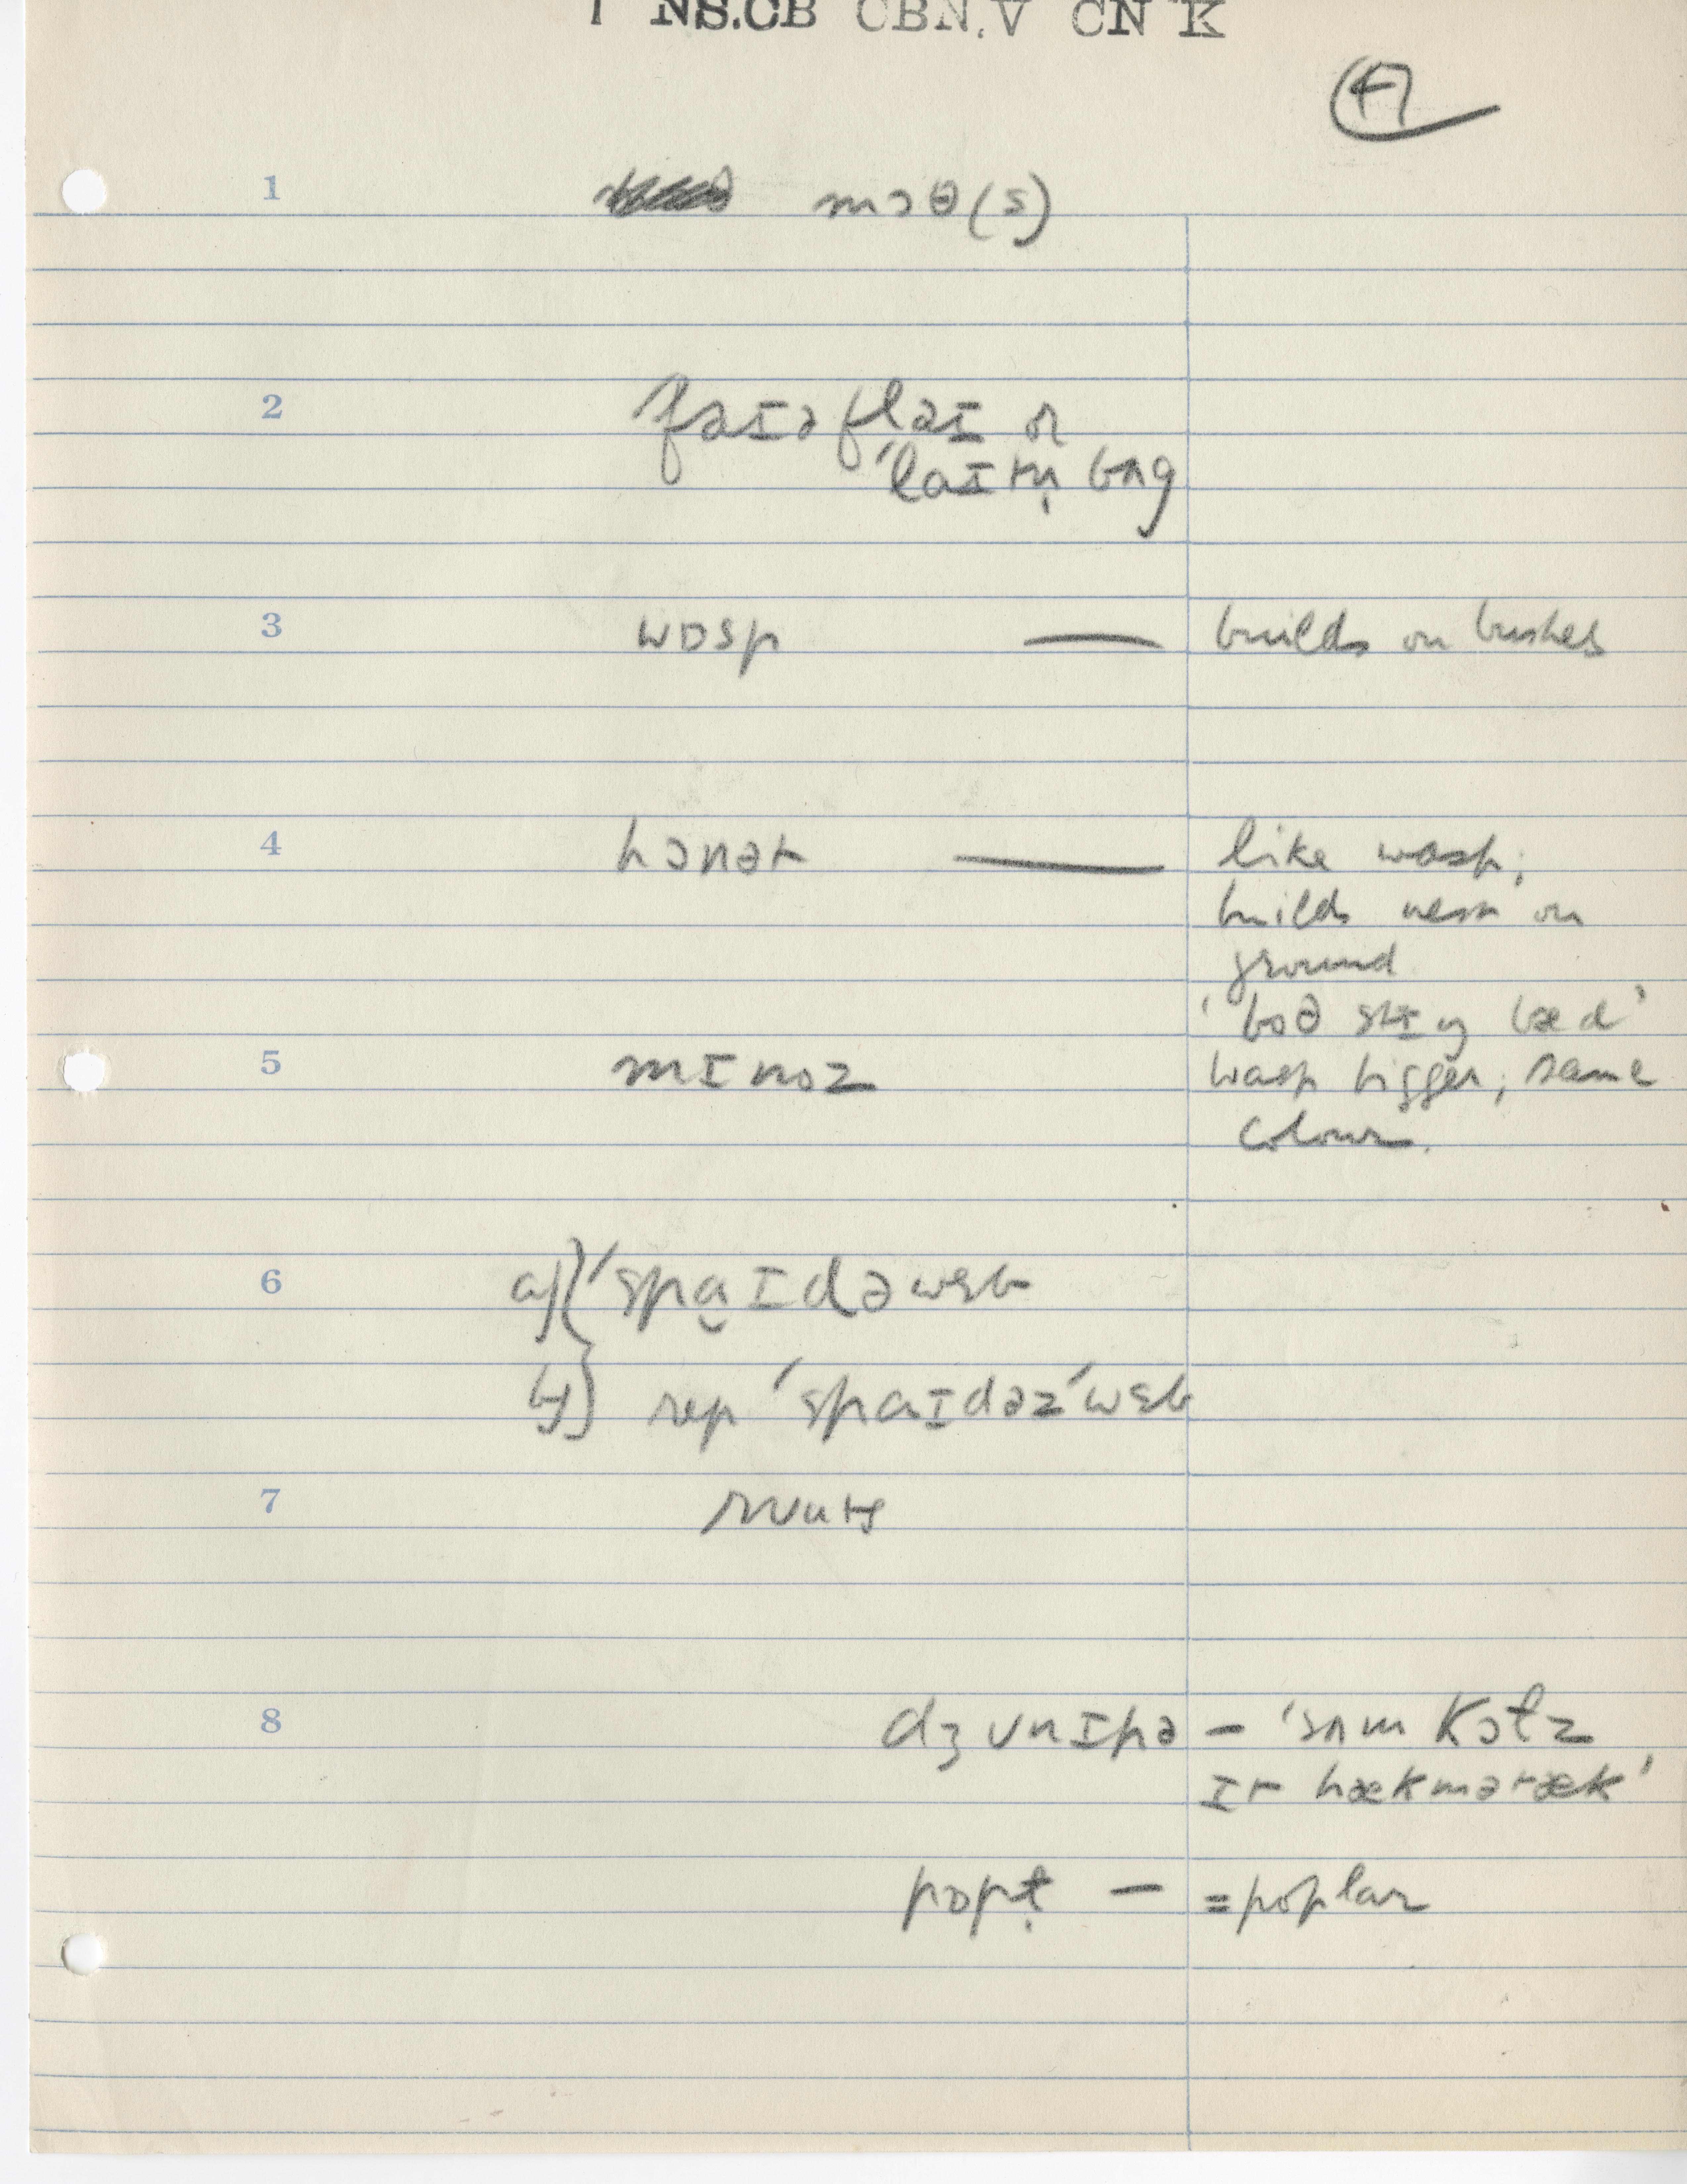 NS.CB CBN.V CN K
47
1 mɔθ(s)
2 faɪəflaɪ or
ˈlaɪtn̩ bʌg
3 wɒsp — builds on bushes
4 hɔnət — like wasp;
builds nest on
ground
'boθ stɪŋ bæd'
5 mɪnoz wasp bigger, same
colour.
6 a) ˈspa̯ɪdəwɛb
b) rep ˈspaɪdəzˈwɛb
7 rʊuts
8 dʒʊnɪpə — 'sʌm kɔɫz
ɪt hækmətæk'
pɒpɫ̩ — = poplar